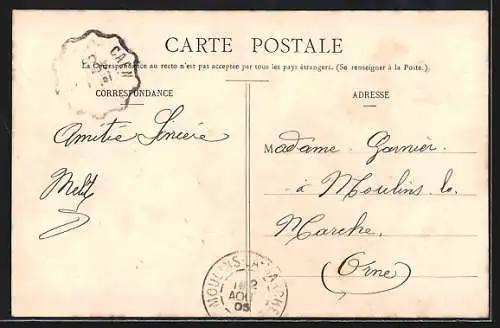 CAEN
CARTE POSTALE
La Correspondance au recto n'est pas acceptée par tous les pays étrangers. (Se renseigner à la Poste.)
CORRESPONDANCE
ADRESSE
Amitié Sincère
Madame Garnier
à Moulins la
Marche
(Orne)
MOULINS-LA-MARCHE
AOUT
05